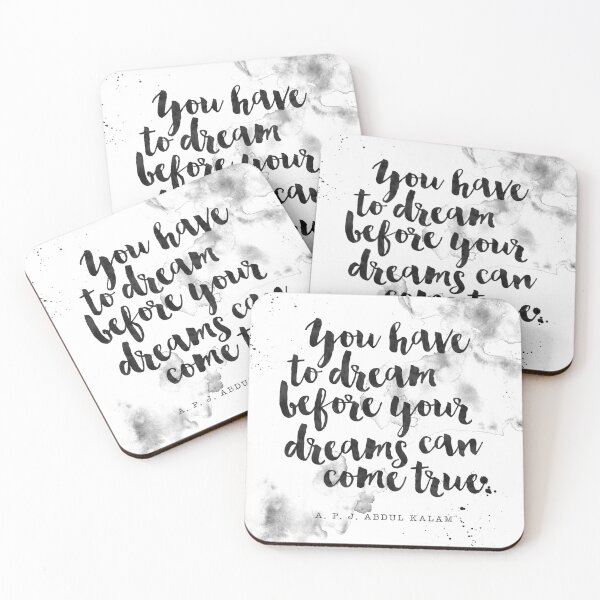 You have
to dream
before your
can
You have
to dream
before your
dreams can
come true.
You have
to dream
before your
dreams can
come
A. P. J. ABDUL
You have
to dream
before your
dreams can
come true.
A. P. J. ABDUL KALAM